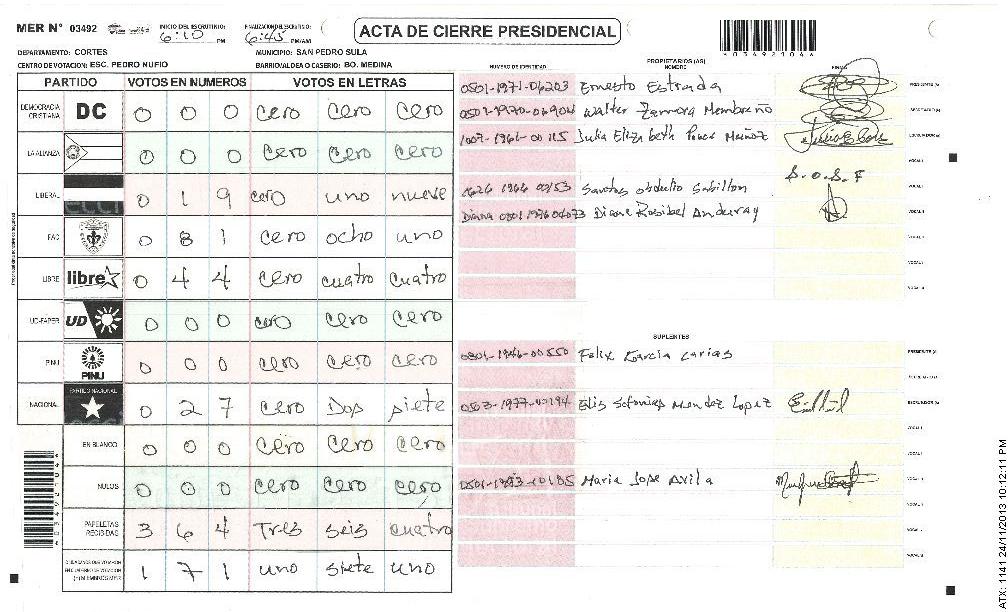 MER Nº 03492 INICIO DEL ESCRUTINIO: 6:10 PM FINALIZACION DEL ESCRUTINIO: 6:45 PM/AM
ACTA DE CIERRE PRESIDENCIAL
DEPARTAMENTO: CORTES MUNICIPIO: SAN PEDRO SULA
CENTRO DE VOTACION: ESC. PEDRO NUFIO BARRIO/ALDEA O CASERIO: BO. MEDINA
PARTIDO VOTOS EN NUMEROS VOTOS EN LETRAS
DEMOCRACIA CRISTIANA DC 0 0 0 cero cero cero
LA ALIANZA 0 0 0 cero cero cero
LIBERAL 0 1 9 cero uno nueve
PAC 0 81 cero ocho uno
LIBRE libre 0 4 4 cero cuatro cuatro
UD-FAPER UD 0 0 0 cero cero cero
PINU PINU 0 0 0 cero cero cero
NACIONAL PARTIDO NACIONAL 0 2 7 cero Dos siete
EN BLANCO 0 0 0 cero cero cero
NULOS 0 0 0 cero cero cero
PAPELETAS RECIBIDAS 3 6 4 Tres seis cuatro
1 7 1 uno siete uno
NUMERO DE IDENTIDAD PROPIETARIOS (AS) NOMBRE FIRMA
0501-1971-06203 Ernesto Estrada PRESIDENTE (A)
Walter Zamora Membreño SECRETARIO (A)
Julia Elizabeth Ponce Muñoz ESCRUTADOR (A)
VOCAL I
1966 00153 Santos obdulio Gabillon S.O.S.F
Diana Rosibel Anduray
SUPLENTES
Felix Garcia carias PRESIDENTE (A)
Mendez Lopez ESCRUTADOR (A)
Maria Jose Avila
ATX: 1141 24/11/2013 10:12:11 PM